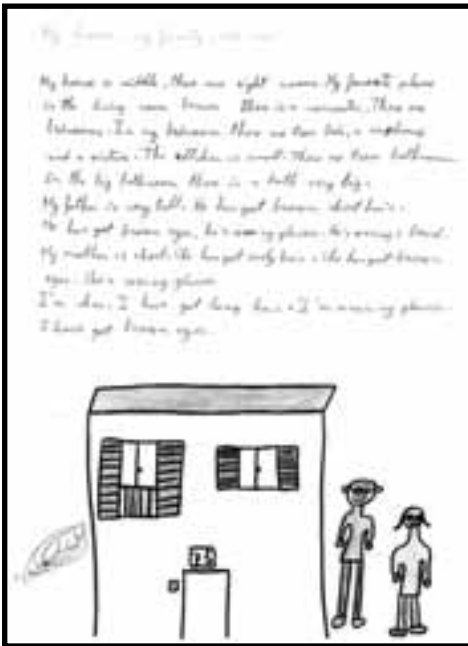 My house, my family and me
My house is middle, there are eight rooms. My favourite place
is the living room because there is a . There are
bedrooms. In my bedroom there are two beds, a
and a picture. The kitchen is small. There are two bathrooms
In the big bathroom there is a bath very big.
My father is very tall. He has got brown short hair.
He has got brown eyes, he's wearing glasses. He's wearing a beard.
My mother is short. She has got curly hair. She has got brown
eyes. She's wearing glasses
I'm . I have got long hair. I'm wearing glasses.
I have got brown eyes.
23